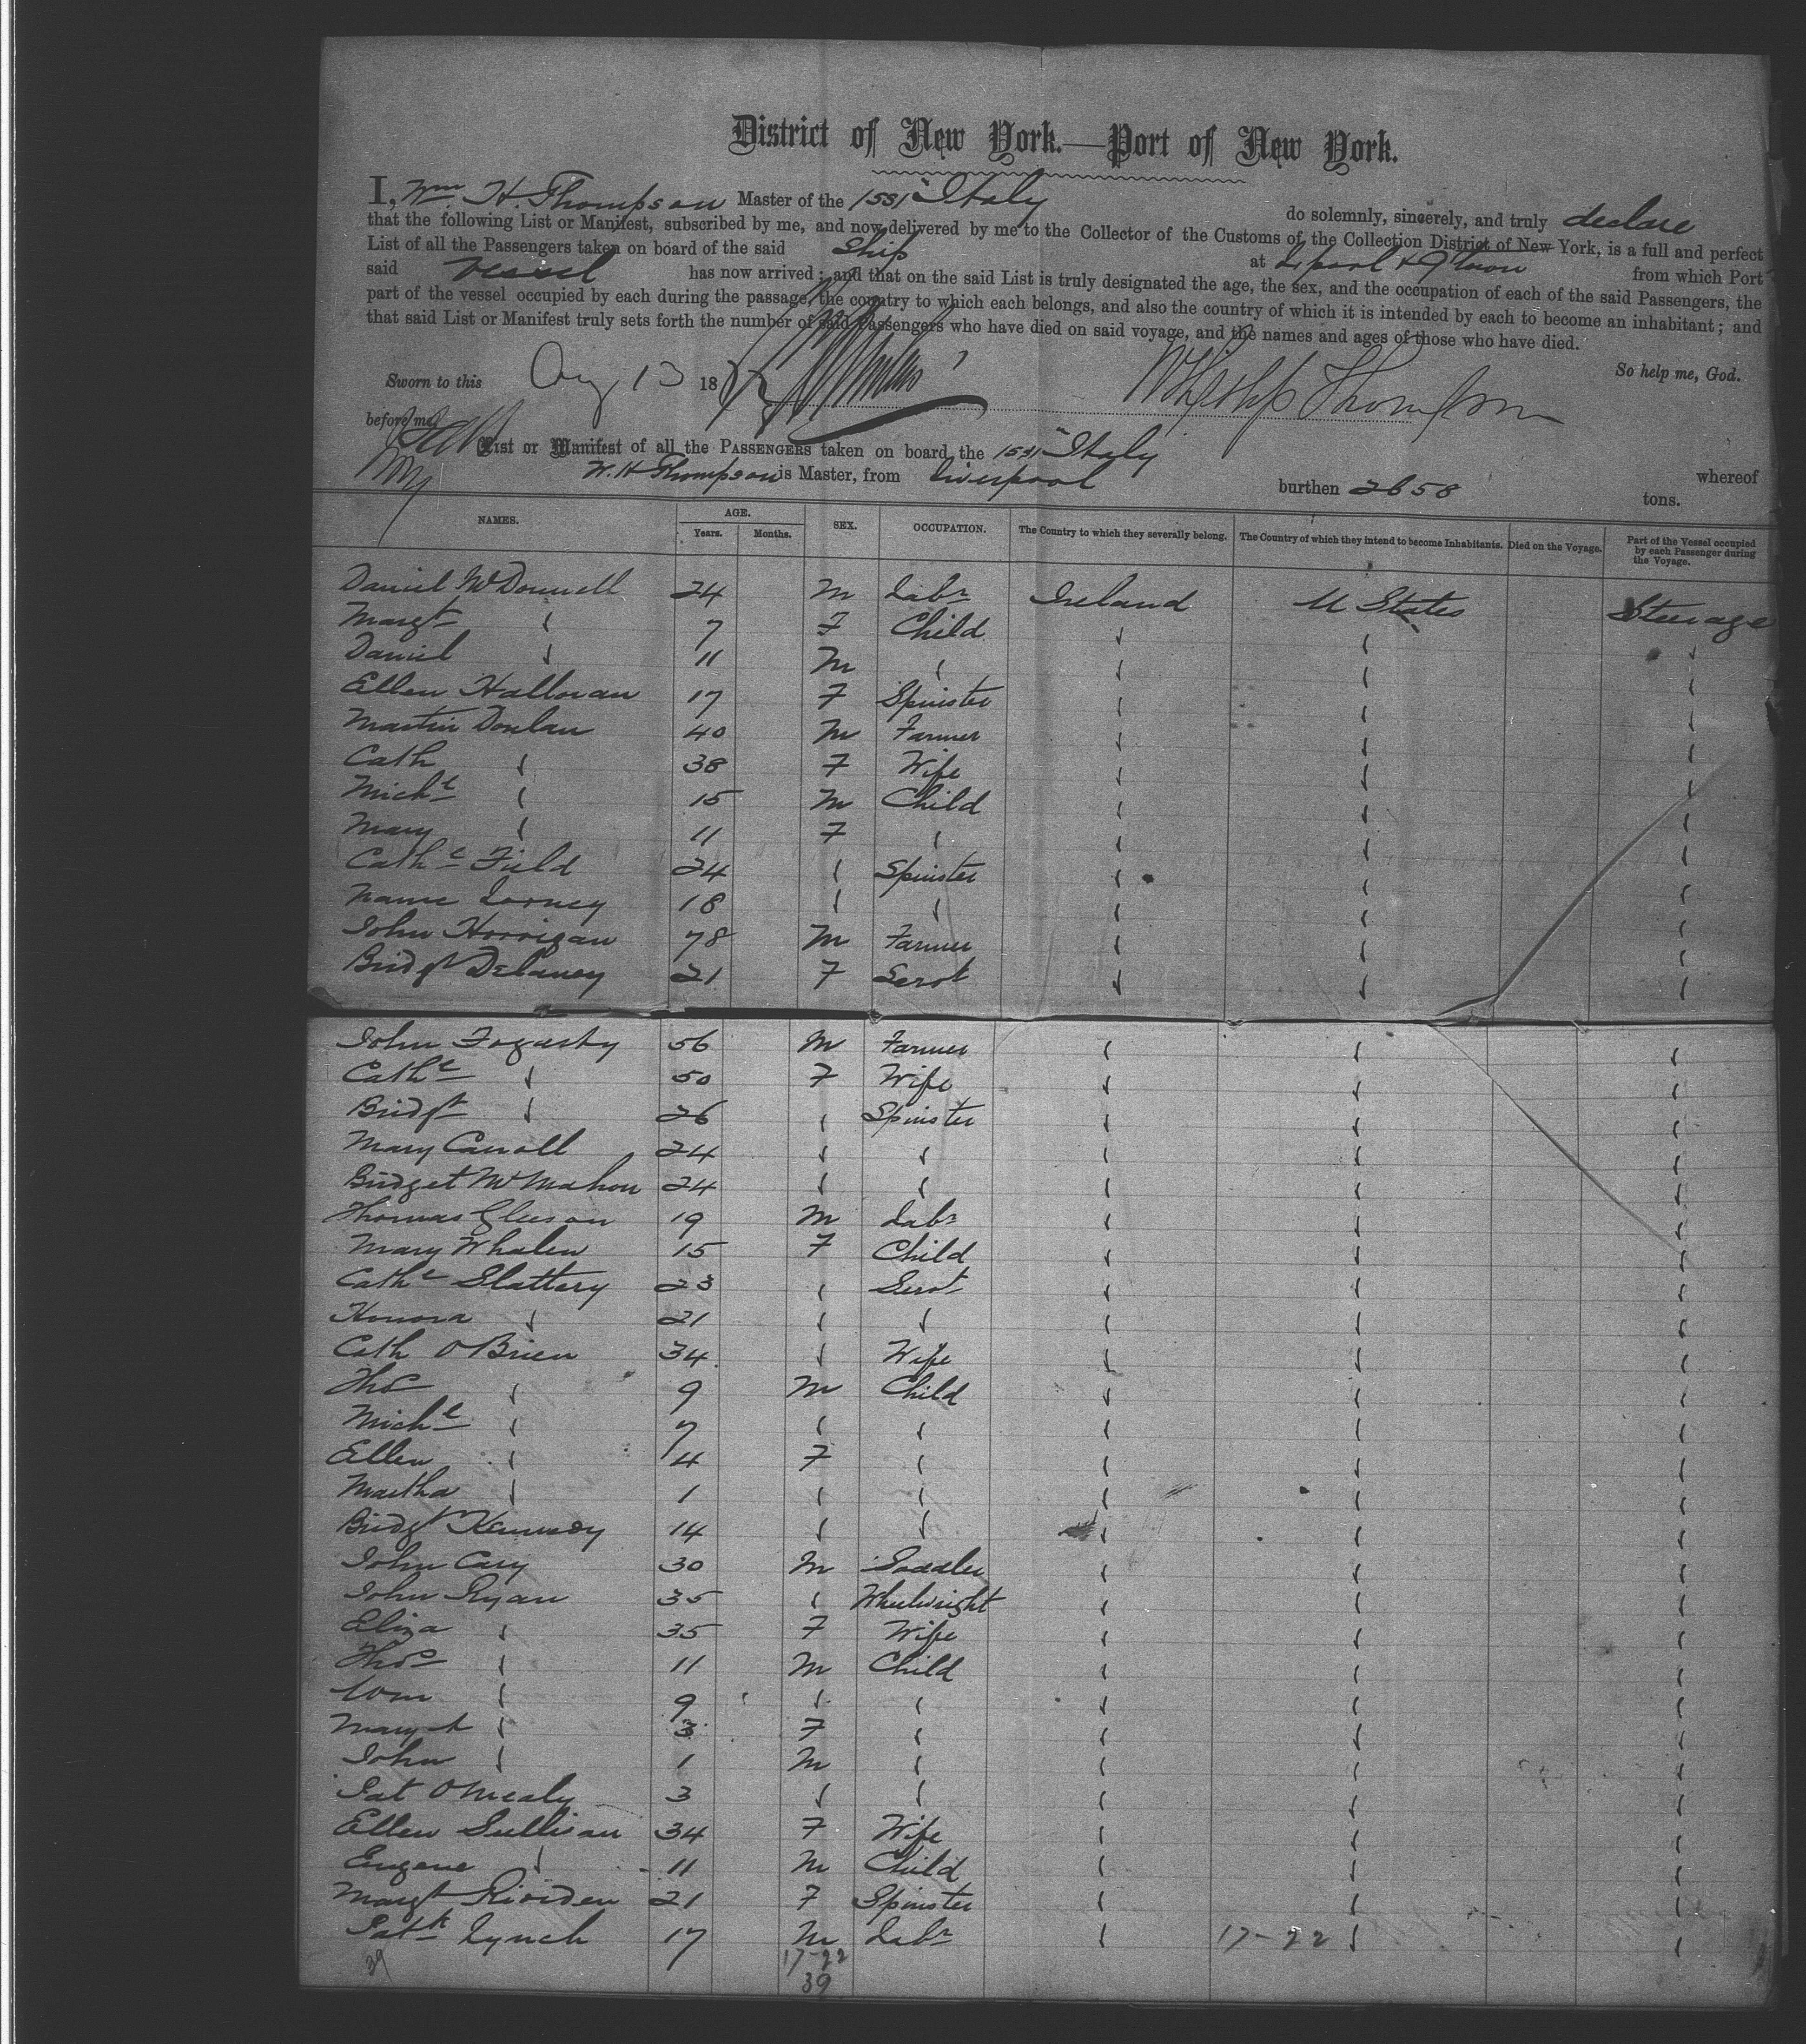 District of New York.—Port of New York.
I, Wm. H. Thompson Master of the 1531 "Italy do solemnly, sincerely, and truly declare
that the following List or Manifest, subscribed by me, and now delivered by me to the Collector of the Customs of the Collection District of New York, is a full and perfect
List of all the Passengers taken on board of the said Ship at L'pool & Q'town from which Port
said Vessel has now arrived; and that on the said List is truly designated the age, the sex, and the occupation of each of the said Passengers, the
part of the vessel occupied by each during the passage, the country to which each belongs, and also the country of which it is intended by each to become an inhabitant; and
that said List or Manifest truly sets forth the number of said Passengers who have died on said voyage, and the names and ages of those who have died.
So help me, God.
Sworn to this Aug 13 18 Thompson
before me,
List or Manifest of all the PASSENGERS taken on board the 1531 "Italy whereof
W. H Thompson is Master, from Liverpool burthen 2658 tons.
NAMES. AGE. Years. Months. SEX. OCCUPATION. The Country to which they severally belong. The Country of which they intend to become Inhabitants. Died on the Voyage. Part of the Vessel occupied by each Passenger during the Voyage.
Daniel McDonnell 24 M Labr Ireland U States Steerage
Margt " 7 F Child " " "
Daniel " 11 M " " " "
Ellen Halloran 17 F Spinster " " "
Martin Donlan 40 M Farmer " " "
Cath " 38 F Wife " " "
Michl " 15 M Child " " "
Mary " 11 F " " " "
Cathe Field 24 " Spinster " " "
18 " " " " "
John Horrigan 78 M Farmer " " "
Bridgt Delaney 21 F Servt " " "
John Fogarty 56 M Farmer " " "
Cathe " 50 F Wife " " "
Bridgt " 26 " Spinster " " "
Mary Carroll 24 " " " " "
Bridget McMahon 24 " " " " "
Thomas Gleeson 19 M Labr " " "
Mary Whalen 15 F Child " " "
Cathe Slattery 23 " Servt " " "
Honora " 21 " " " " "
Cath O'Brien 34 " Wife " " "
Thos " 9 M Child " " "
Michl " 7 " " " " "
Ellen " 4 F " " " "
Martha " 1 " " " " "
Bridgt Kennedy 14 " " " " "
John Cary 30 M Saddler " " "
John Ryan 35 " Wheelwright " " "
Eliza " 35 F Wife " " "
Thos " 11 M Child " " "
Wm " 9 " " " " "
Margt " 3 F " " " "
John " 1 M " " " "
Pat O'Mealy 3 " " " " "
Ellen Sullivan 34 F Wife " " "
Eugene " 11 M Child " " "
Margt Riorden 21 F Spinster " " "
Patk Lynch 17 M Labr " 17-22 " "
39 17-22
39